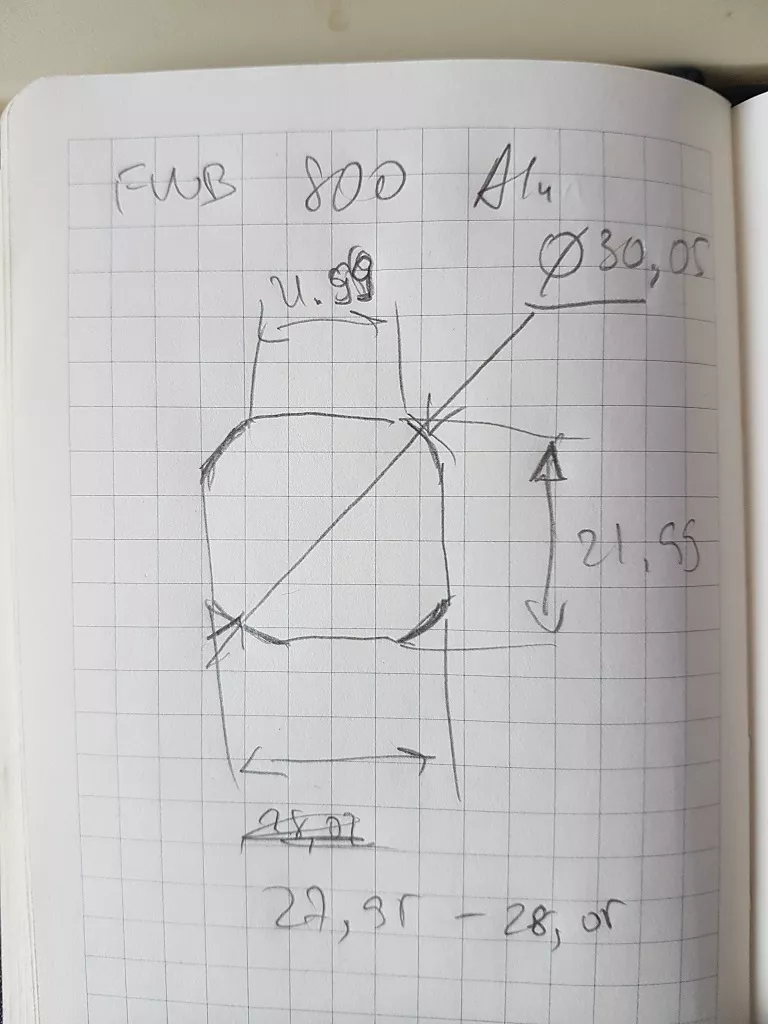 FWB 800 Alu
Ø 30,05
21.99
21,99
28,07
27,95 - 28,05